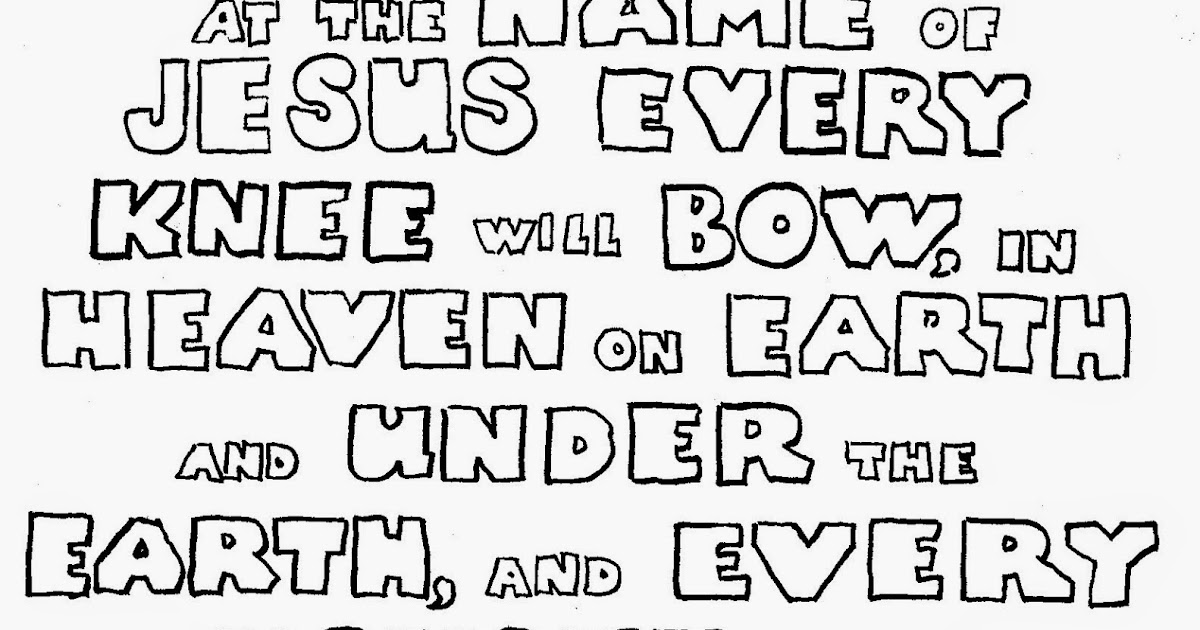 AT THE NAME OF
JESUS EVERY
KNEE WILL BOW, IN
HEAVEN ON EARTH
AND UNDER THE
EARTH, AND EVERY